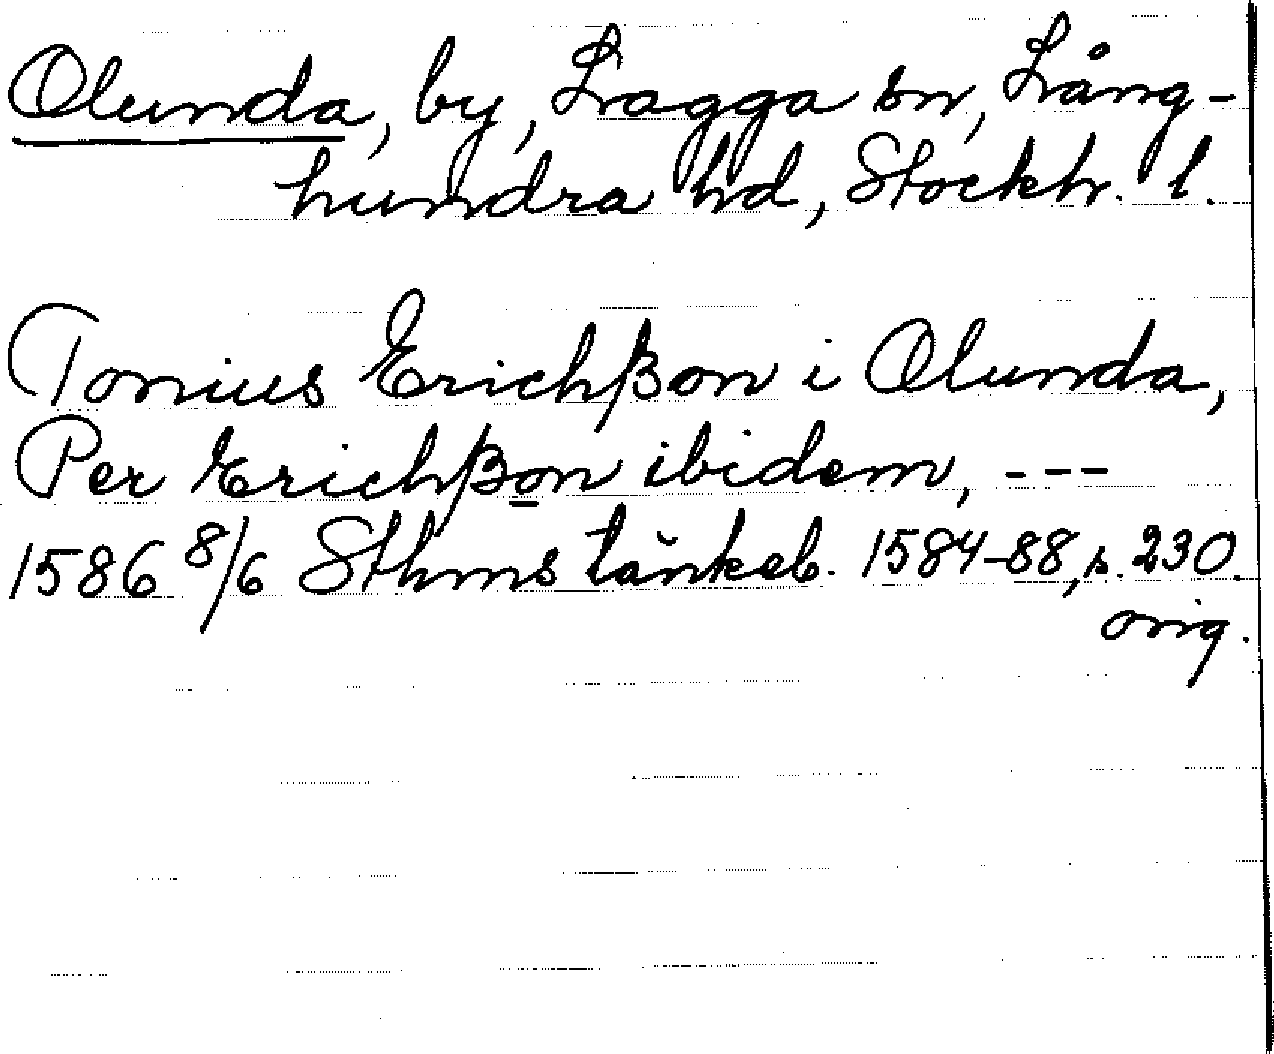 Olunda, by, Lagga sn, Lång-
hundra hd, Stockh. l.
Tonius Erichßon i Olunda,
Per Erichßon ibidem, ---
1586 8/6 Sthms tänkeb. 1584-88, s. 230.
orig.